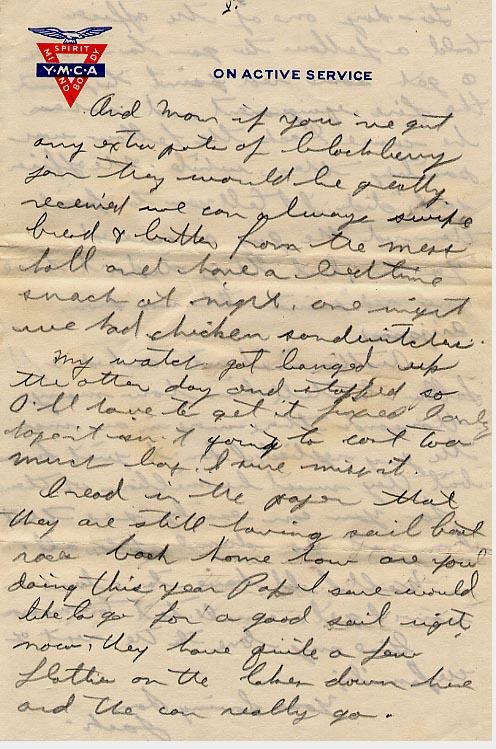 2.
SPIRIT
MIND
BODY
Y·M·C·A
ON ACTIVE SERVICE
And Mom if you've got
any extra pots of blackberry
jam they would be greatly
received we can always swipe
bread & butter from the mess
hall and have a bedtime
snack at night, one night
we had chicken sandwitches.
My watch got banged up
the other day and stopped so
I'll have to get it fixed I only
hope it isn't going to cost too
much boy, I sure miss it.
I read in the paper that
they are still having sail boat
races back home how are you
doing this year Pop I sure would
like to go for a good sail right
now, they have quite a few
on the lakes down here
and the can really go.